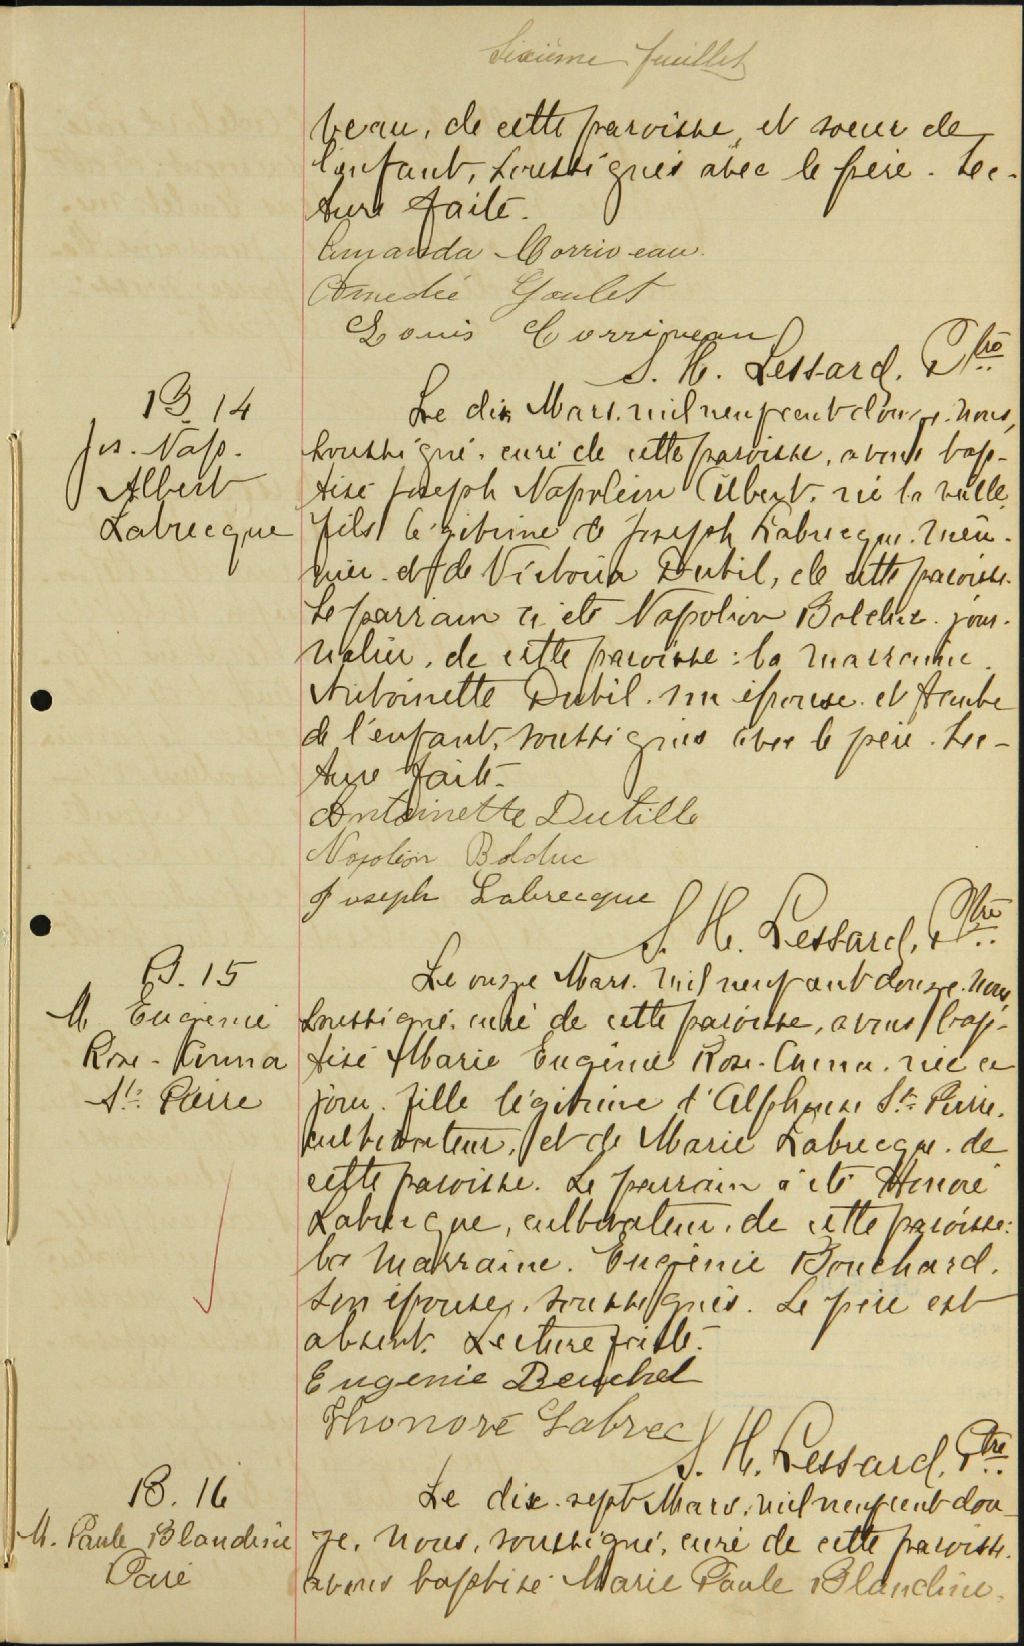 Sixième feuillet
veau, de cette paroisse, et soeur de
l'enfant, soussignés avec le père. Lec-
ture faite.
Amanda Corriveau
Amedée Goulet
Louis Corriveau
S. H. Lessard, Ptre
B. 14
Jos. Nap.
Albert
Labrecque
Le dix Mars, mil neuf cent douze, nous,
soussigné, curé de cette paroisse, avons bap-
tisé Joseph Napoléon Albert, né la veille,
fils légitime de Joseph Labrecque, meu-
nier, et de Victoria Dutil, de cette paroisse.
Le parrain a été Napoléon Bolduc, jour-
nalier, de cette paroisse: la marraine,
Antoinette Dutil, son épouse, et tante
de l'enfant, soussignés avec le père. Lec-
ture faite.
Antoinette Dutille
Napoléon Bolduc
Joseph Labrecque
S. H. Lessard, Ptre
B. 15
M Eugénie
Rose-Anna
St. Pierre
Le onze Mars, mil neuf cent douze, nous,
soussigné, curé de cette paroisse, avons bap-
tisé Marie Eugénie Rose-Anna, née ce
jour, fille légitime d'Alphonse St. Pierre,
cultivateur, et de Marie Labrecque, de
cette paroisse. Le parrain a été Honoré
Labrecque, cultivateur, de cette paroisse:
la marraine, Eugénie Bouchard,
son épouse, soussignés. Le père est
absent. Lecture faite.
Eugenie Bouchel
Thonoré Labrec
S. H. Lessard, Ptre
B. 16
M. Paule Blandine
Paré
Le dix-sept Mars, mil neuf cent dou-
ze, nous, soussigné, curé de cette paroisse,
avons baptisé Marie Paule Blandine,